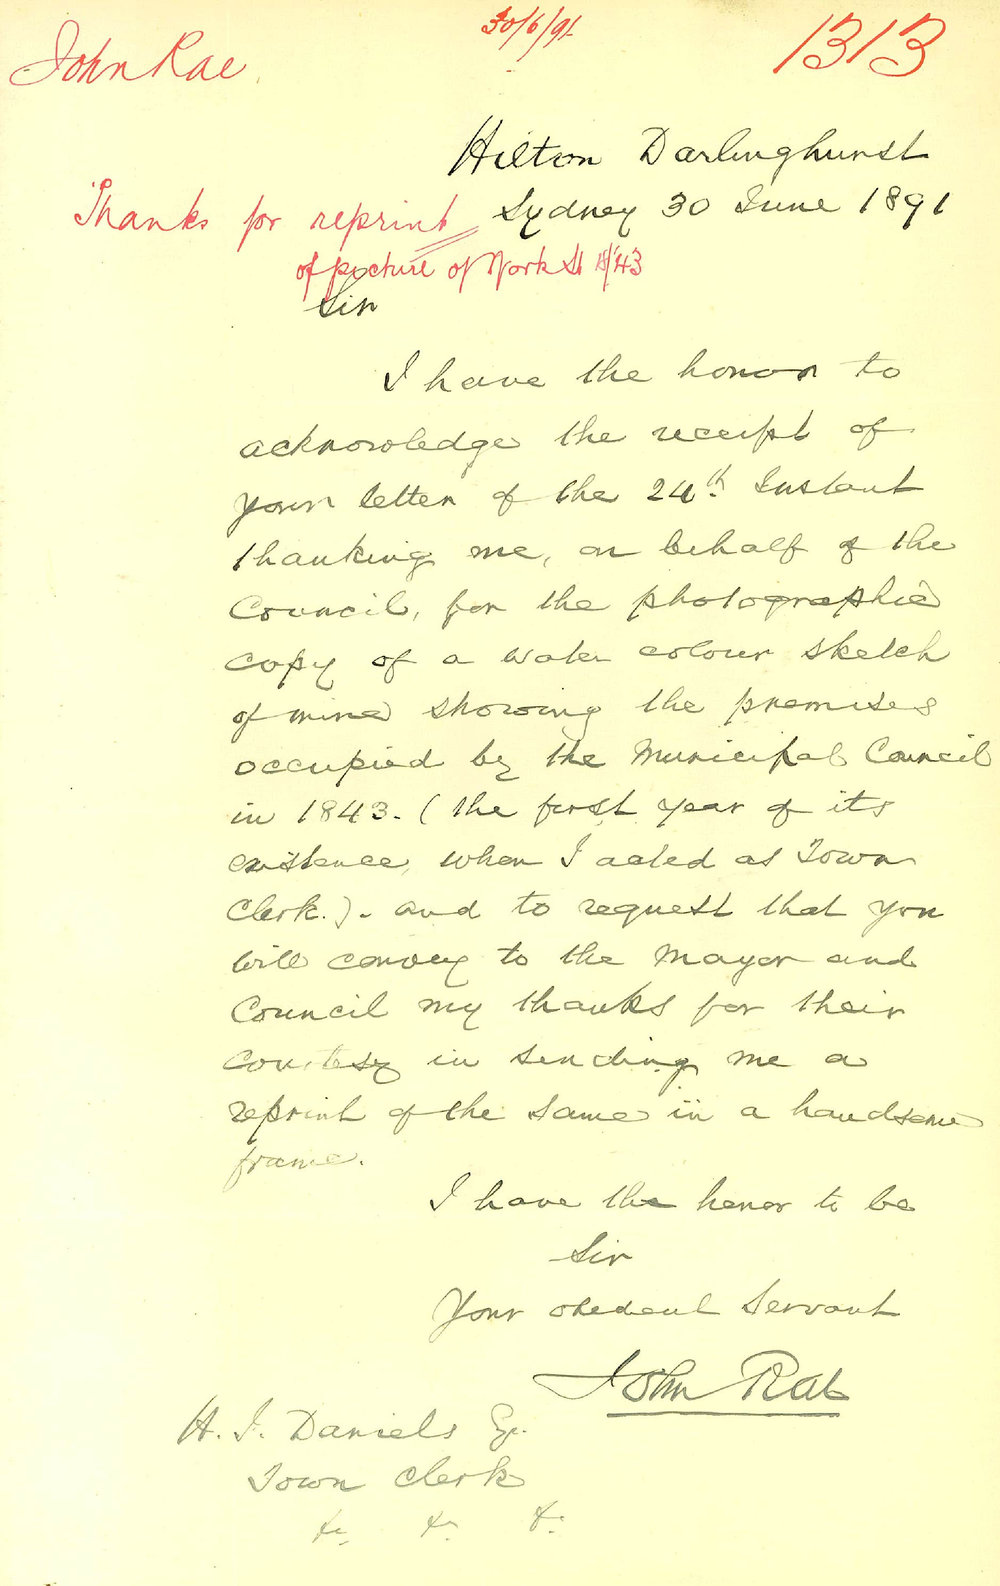 John Rae
30/6/91
1313
Hilton Darlinghurst
Sydney 30 June 1891
Thanks for reprint
of picture of York St 1843
Sir
I have the honor to
acknowledge the receipt of
your letter of the 24th Instant
thanking me, on behalf of the
Council, for the photographic
copy of a water colour sketch
of mine showing the premises
occupied by the Municipal Council
in 1843. (the first year of its
existence, when I acted as Town
Clerk.). and to request that you
will convey to the Mayor and
Council my thanks for their
courtesy in sending me a
reprint of the same in a handsome
frame.
I have the honor to be
Sir
Your obedient Servant
John Rae
H. J. Daniels Esq.
Town Clerk
&c. &c. &c.